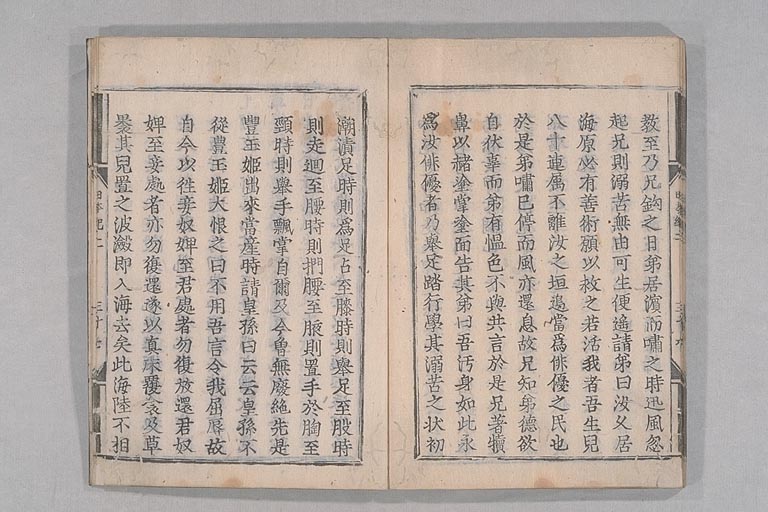 教至乃兄釣之日弟居濱而嘯之時迅風忽
起兄則溺苦無由可生便遙請弟曰汝久居
海原必有善術願以救之若活我者吾生兒
八十連属不離汝之垣邊當爲俳優之民也
於是弟嘯已停而風亦還息故兄知弟德欲
自伏辜而弟有慍色不與共言於是兄著犢
鼻以赭塗掌塗面告其弟曰吾汚身如此永
爲汝俳優者乃舉足踏行學其溺苦之状初
潮漬足時則爲足占至膝時則舉足至股時
則走廻至腰時則捫腰至腋則置手於胸至
頸時則舉手飄掌自爾及今曽無廢絶先是
豐玉姬出來當産時請皇孫曰云云皇孫不
從豐玉姬大恨之曰不用吾言令我屈辱故
自今以往妾奴婢至君處者勿復放還君奴
婢至妾處者亦勿復還遂以真床覆衾及草
褁其兒置之波瀲即入海去矣此海陸不相
日本紀二
三十七